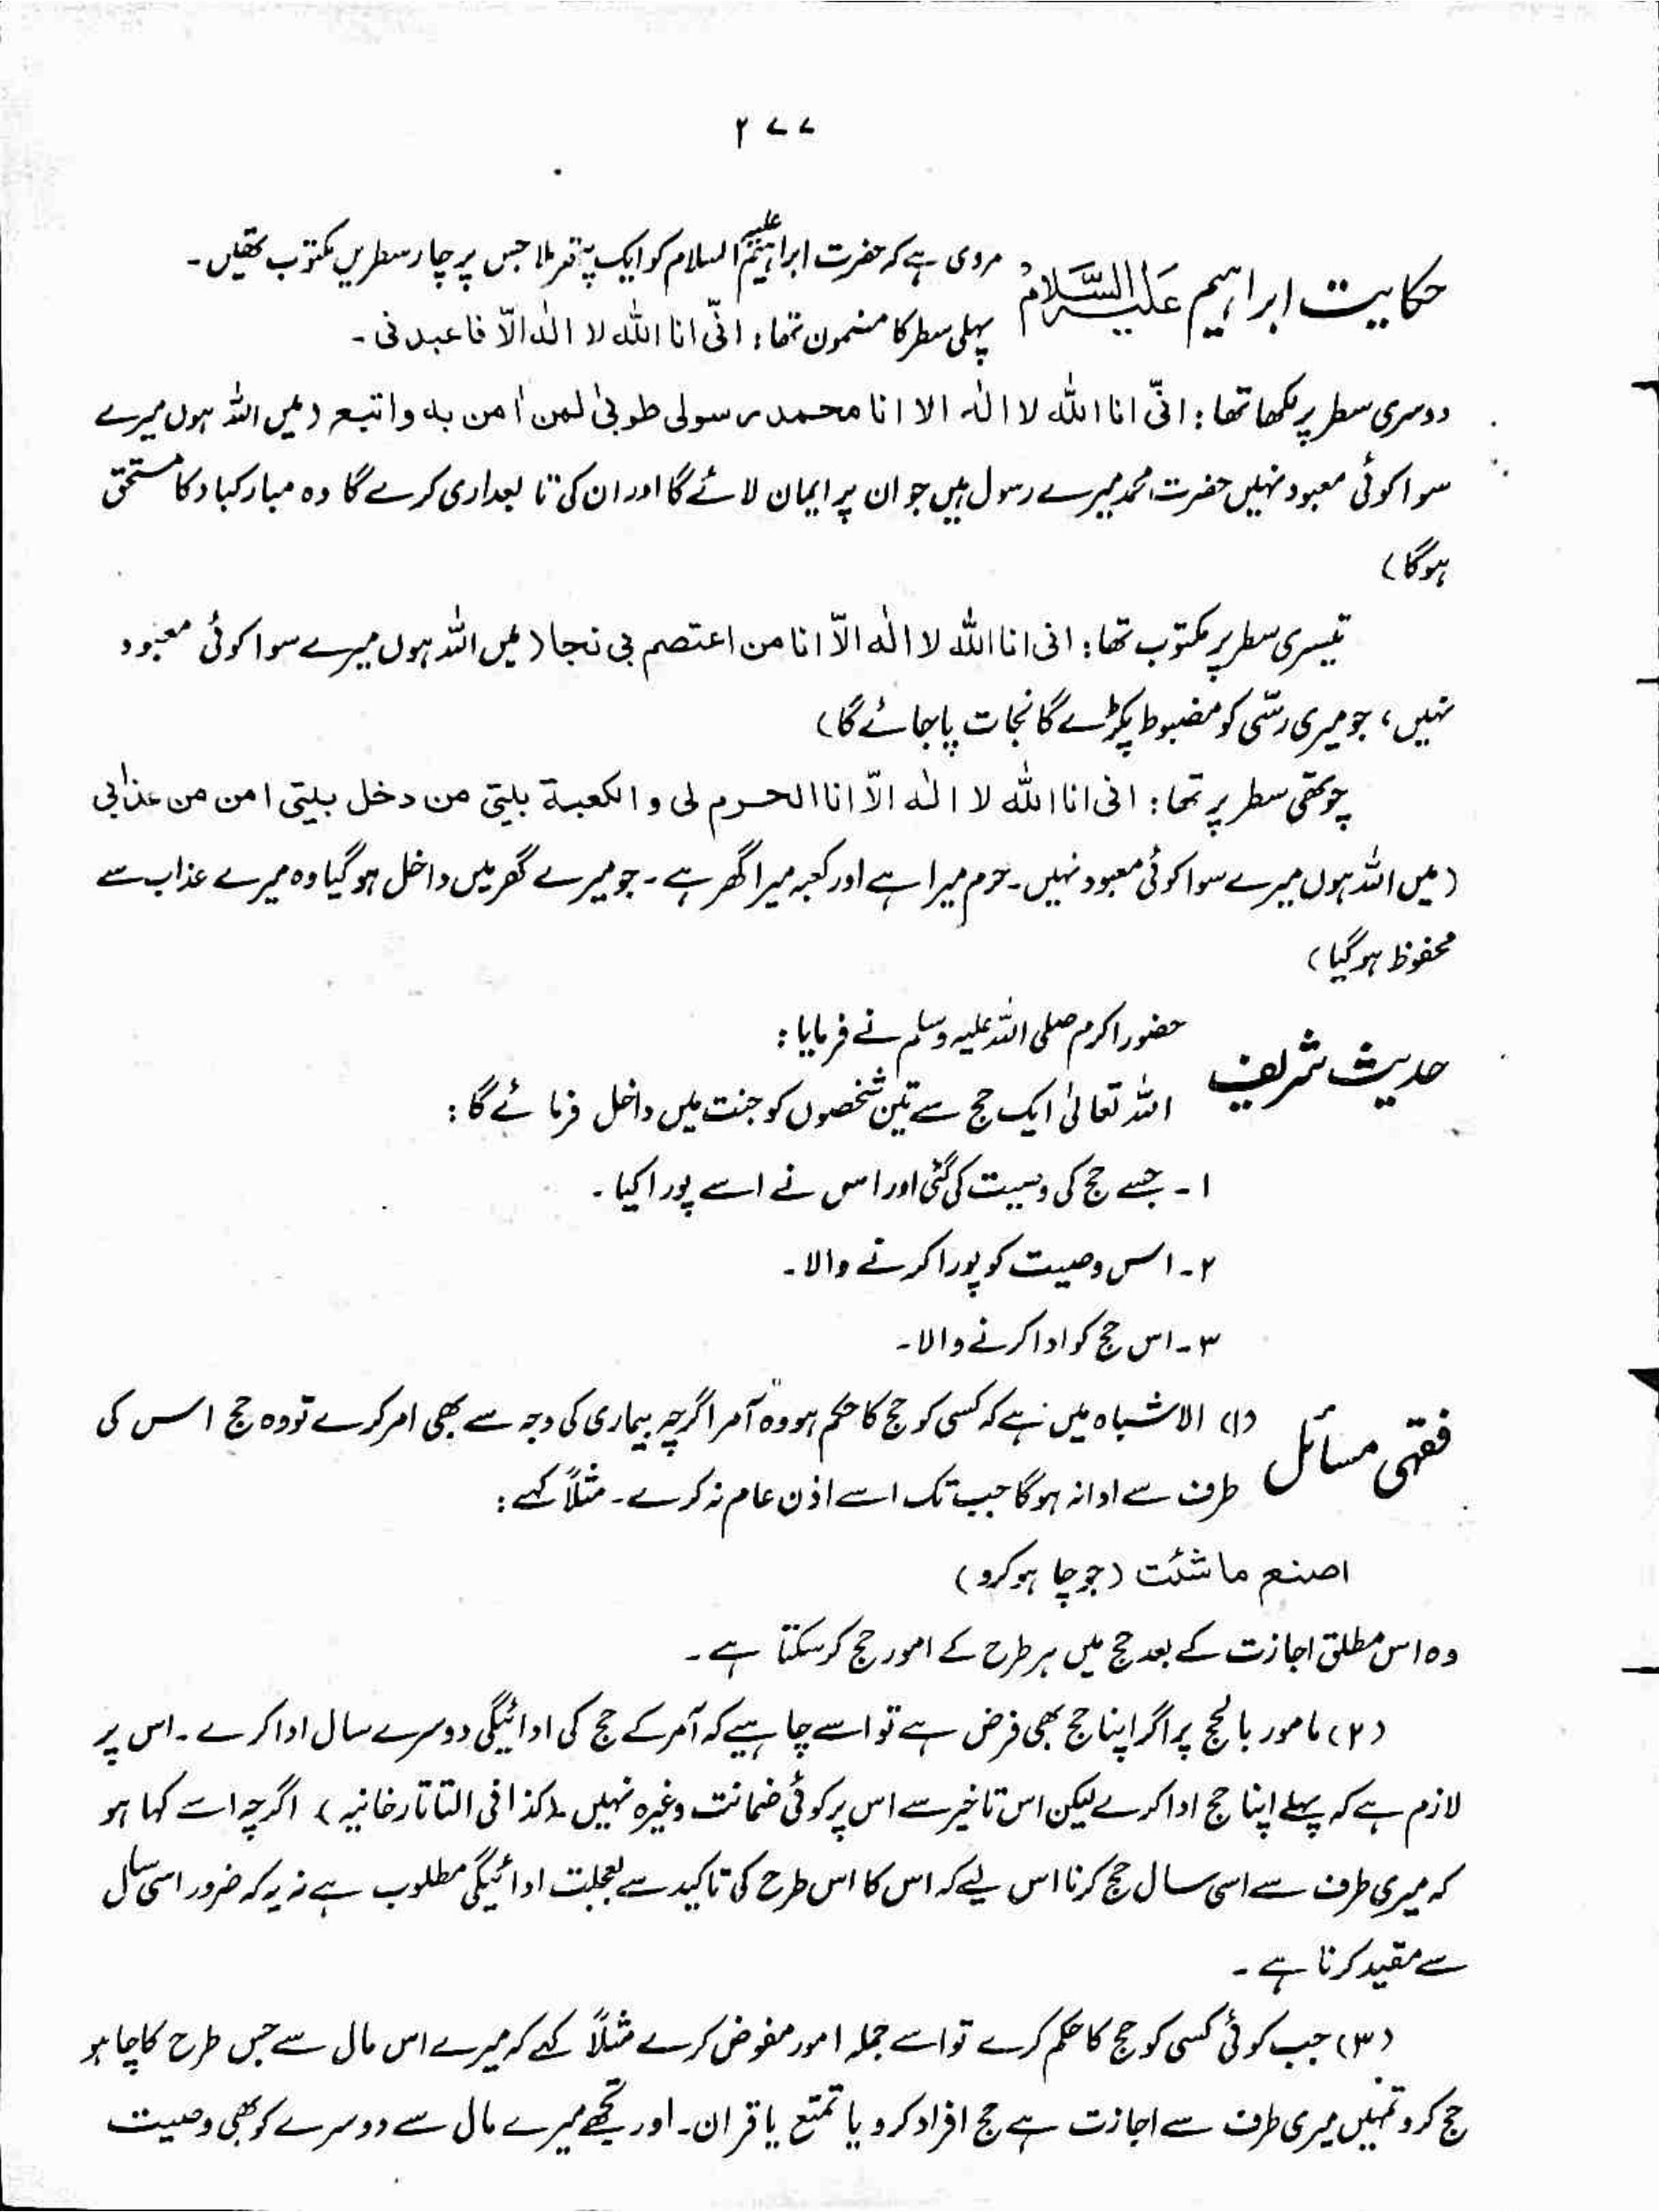 ۲۷۷
حکایت ابراہیم علیہ السَّلَامُ
مروی ہے کہ حضرت ابراہیم علیہ السلام کو ایک پتھر ملا جس پر چار سطریں مکتوب تھیں۔
پہلی سطر کا مضمون تھا: انّی انا اللہ لا الٰہ الّا فاعبدنی۔
دوسری سطر پر لکھا تھا: انّی انا اللہ لا الٰہ الا انا محمد رسولی طوبیٰ لمن اٰمن بہ واتبع (میں اللہ ہوں میرے
سوا کوئی معبود نہیں حضرت محمد میرے رسول ہیں جو ان پر ایمان لائے گا اور ان کی تابعداری کرے گا وہ مبارکباد کا مستحق
ہوگا)
تیسری سطر پر مکتوب تھا: انی انا اللہ لا الٰہ الّا انا من اعتصم بی نجا (میں اللہ ہوں میرے سوا کوئی معبود
نہیں، جو میری رسّی کو مضبوط پکڑے گا نجات پا جائے گا)
چوتھی سطر پر تھا: انی انا اللہ لا الٰہ الّا انا الحرم لی و الکعبۃ بیتی من دخل بیتی امن من عذابی
(میں اللہ ہوں میرے سوا کوئی معبود نہیں۔ حرم میرا ہے اور کعبہ میرا گھر ہے۔ جو میرے گھر میں داخل ہو گیا وہ میرے عذاب سے
محفوظ ہو گیا)
حدیث شریف
حضور اکرم صلی اللہ علیہ وسلم نے فرمایا:
اللہ تعالیٰ ایک حج سے تین شخصوں کو جنت میں داخل فرمائے گا:
۱۔ جسے حج کی وصیت کی گئی اور اس نے اسے پورا کیا۔
۲۔ اس وصیت کو پورا کرنے والا۔
۳۔ اس حج کو ادا کرنے والا۔
فقہی مسائل
(۱) الاشباہ میں ہے کہ کسی کو حج کا حکم ہو وہ آمر اگرچہ بیماری کی وجہ سے بھی امر کرے تو وہ حج اس کی
طرف سے ادا نہ ہوگا جب تک اسے اذن عام نہ کرے۔ مثلاً کہے:
اصنع ما شئت (جو چاہو کرو)
وہ اس مطلق اجازت کے بعد حج میں ہر طرح کے امور حج کر سکتا ہے۔
(۲) مامور بالحج پر اگر اپنا حج بھی فرض ہے تو اسے چاہیے کہ آمر کے حج کی ادائیگی دوسرے سال ادا کرے۔ اس پر
لازم ہے کہ پہلے اپنا حج ادا کرے لیکن اس تاخیر سے اس پر کوئی ضمانت وغیرہ نہیں۔ (کذا فی التاتارخانیہ) اگرچہ اسے کہا ہو
کہ میری طرف سے اسی سال حج کرنا اس لیے کہ اس کا اس طرح کی تاکید سے بعجلت ادائیگی مطلوب ہے نہ یہ کہ ضرور اسی سال
سے مقید کرنا ہے۔
(۳) جب کوئی کسی کو حج کا حکم کرے تو اسے جملہ امور مفوض کرے مثلاً کہے کہ میرے اس مال سے جس طرح کا چاہو
حج کرو تمہیں میری طرف سے اجازت ہے حج افراد کرو یا تمتع یا قران۔ اور تجھے میرے مال سے دوسرے کو بھی وصیت